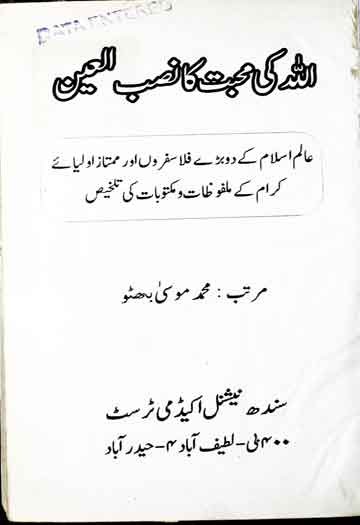 DATA ENTERED
اللہ کی محبت کا نصب العین
عالم اسلام کے دو بڑے فلاسفروں اور ممتاز اولیائے
کرام کے ملفوظات و مکتوبات کی تلخیص
مرتب : محمد موسیٰ بھٹو
سندھ نیشنل اکیڈمی ٹرسٹ
۴۰۰ بی - لطیف آباد ۴ - حیدر آباد